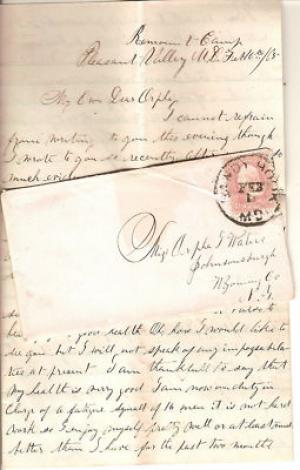 Remount Camp
Pleasant Valley Md. Feb 6th /65
My Own Dear Orpha
I cannot refrain
from writing to you this evening though
I wrote to you so recently
much
SANDY HOOK
FEB
MD
Miss Orpha G Waters
Johnsonsburgh
Wyoming Co
N.Y.
your health Oh how I would like to
see you but I will not speak of my impossibilities
at present I am thankful to say that
my health is very good I am now on duty in
charge of a fatigue squad of 16 men it is not hard
work so I enjoy myself pretty well or at least much
better than I have for the past two months